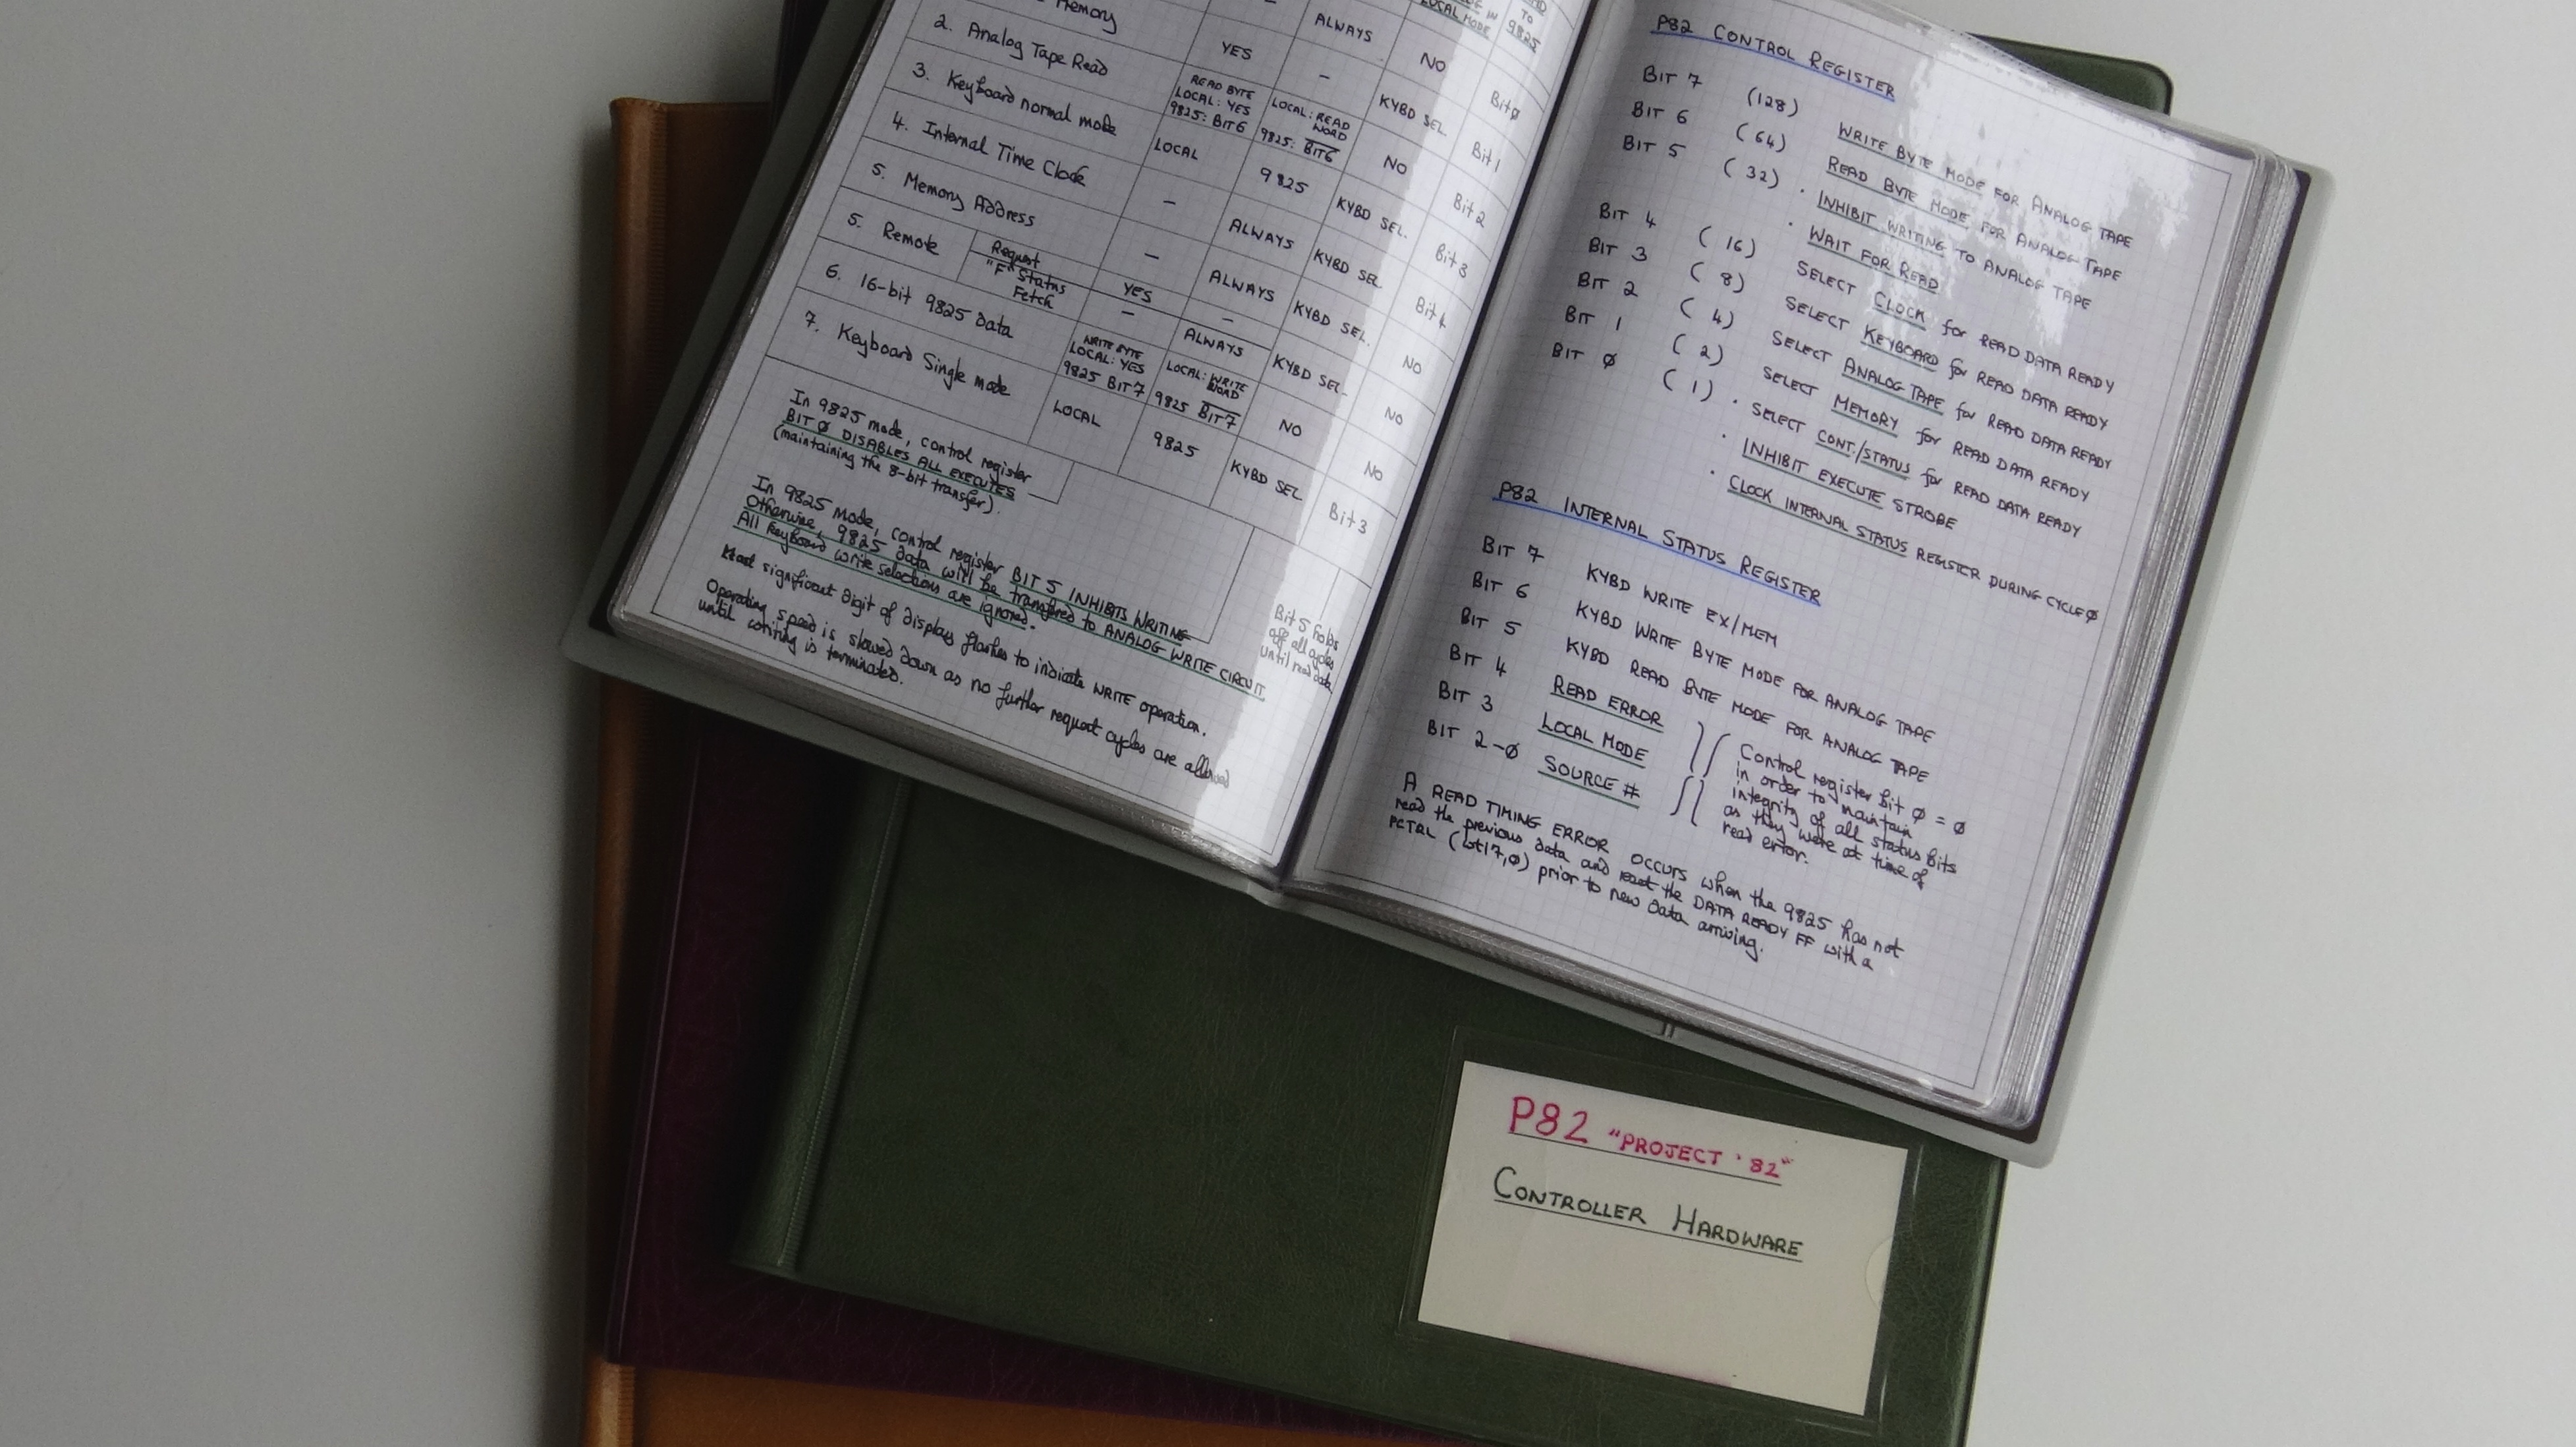 Memory
YES
ALWAYS
NO
Bit Ø
LOCAL MODE
TO
9825
2. Analog Tape Read
READ BYTE
LOCAL: YES
9825: BIT6
LOCAL: READ
WORD
9825: BIT6
KYBD SEL.
Bit 1
3. Keyboard normal mode
LOCAL
9825
NO
Bit 2
4. Internal Time Clock
–
ALWAYS
KYBD SEL.
Bit 3
5. Memory Address
–
ALWAYS
KYBD SEL.
Bit 4
5. Remote
Request
"F" Status
Fetch
YES
–
–
ALWAYS
KYBD SEL.
NO
6. 16-bit 9825 data
WRITE BYTE
LOCAL: YES
9825 BIT7
LOCAL: WRITE
WORD
9825 BIT7
KYBD SEL.
NO
NO
NO
7. Keyboard Single mode
LOCAL
9825
KYBD SEL.
Bit 3
In 9825 mode, control register
BIT Ø DISABLES ALL EXECUTES
(maintaining the 8-bit transfer).
In 9825 mode, control register BIT 5 INHIBITS WRITING
Otherwise, 9825 data will be transferred to ANALOG WRITE CIRCUIT
All keyboard write selections are ignored.
Least significant digit of display flashes to indicate WRITE operation.
Operating speed is slowed down as no further request cycles are allowed
until writing is terminated.
Bit 5 holds
off all cycles
until read data
P82 CONTROL REGISTER
BIT 7 (128) WRITE BYTE MODE FOR ANALOG TAPE
BIT 6 (64) READ BYTE MODE FOR ANALOG TAPE
BIT 5 (32) · INHIBIT WRITING TO ANALOG TAPE
· WAIT FOR READ
BIT 4 (16) SELECT CLOCK for READ DATA READY
BIT 3 (8) SELECT KEYBOARD for READ DATA READY
BIT 2 (4) SELECT ANALOG TAPE for READ DATA READY
BIT 1 (2) SELECT MEMORY for READ DATA READY
BIT Ø (1) · SELECT CONT./STATUS for READ DATA READY
· INHIBIT EXECUTE STROBE
· CLOCK INTERNAL STATUS REGISTER DURING CYCLE Ø
P82 INTERNAL STATUS REGISTER
BIT 7 KYBD WRITE EX/MEM
BIT 6 KYBD WRITE BYTE MODE FOR ANALOG TAPE
BIT 5 KYBD READ BYTE MODE FOR ANALOG TAPE
BIT 4 READ ERROR
BIT 3 LOCAL MODE
BIT 2-Ø SOURCE #
Control register Bit Ø = Ø
in order to maintain
integrity of all status bits
as they were at time of
read error.
A READ TIMING ERROR OCCURS when the 9825 has not
read the previous data and reset the DATA READY FF with a
PCTRL (wti7,Ø) prior to new data arriving.
P82 "PROJECT '82"
CONTROLLER HARDWARE